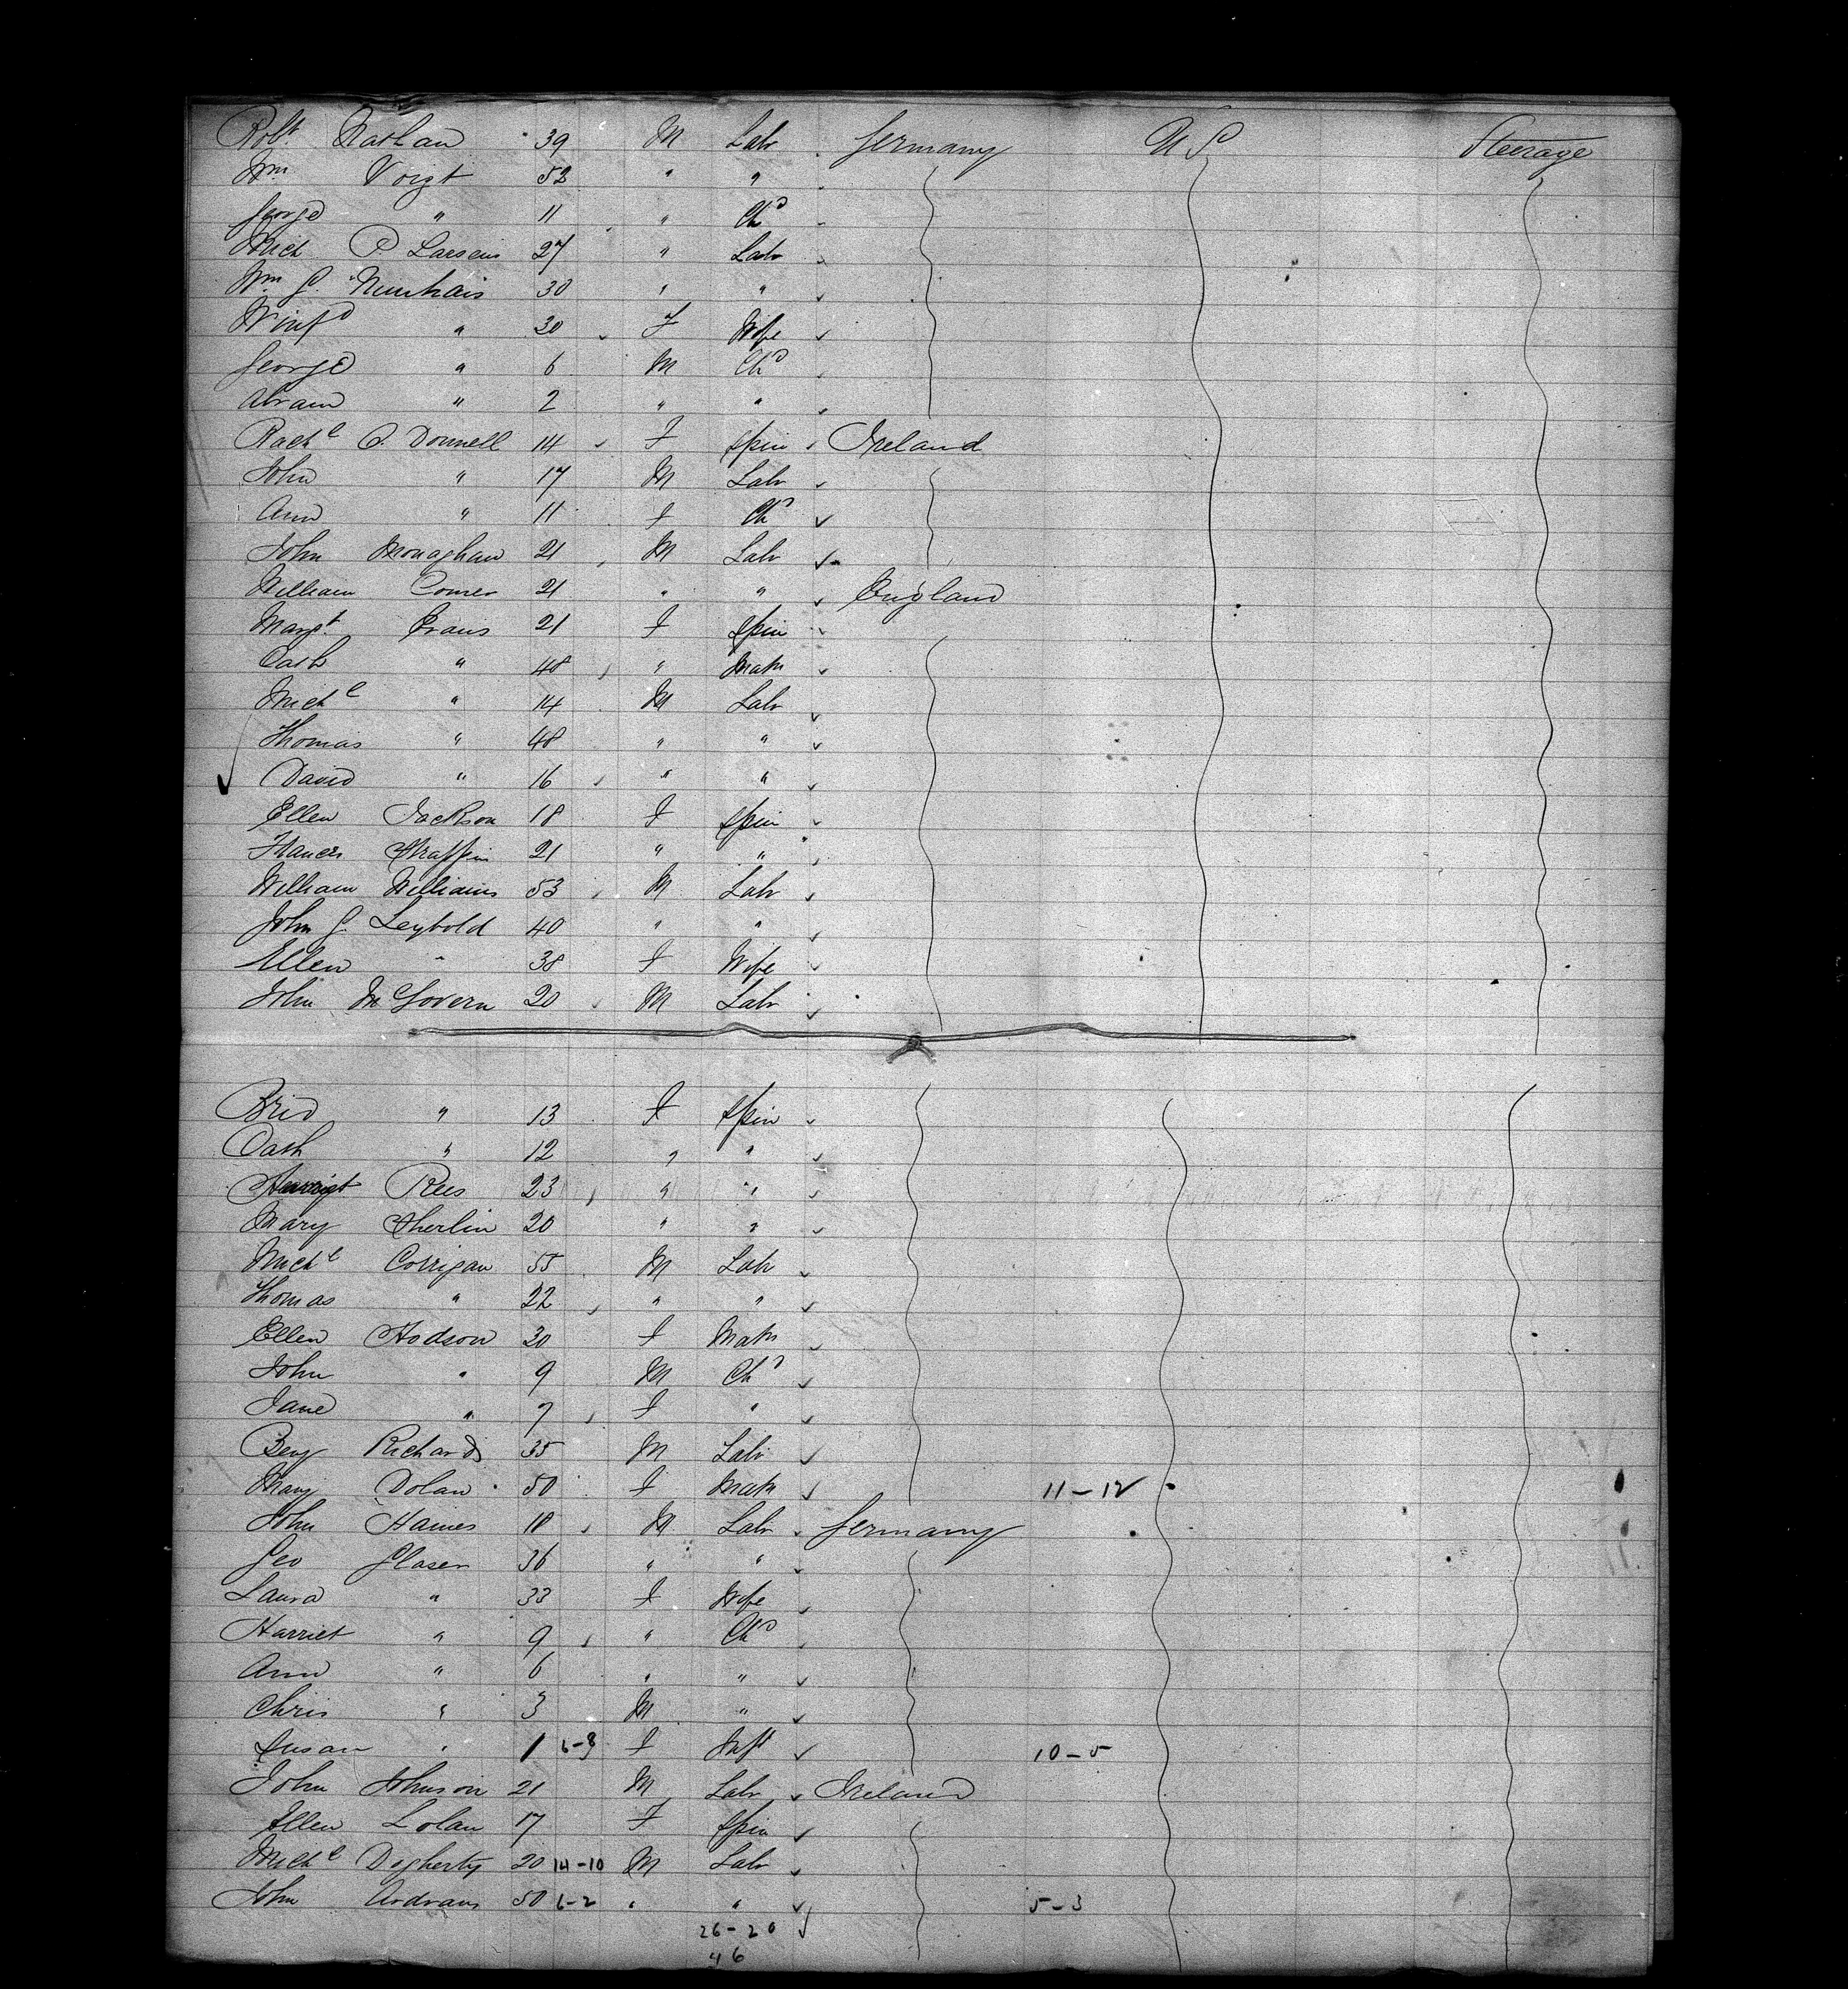 Robt. Nathan 39 M Labr Germany U S Steerage
Wm Voigt 52 " "
George " 11 " Chd
Mich P. Larsein 27 " Labr
Wm G. 30 " "
Winfd " 30 F Wife
George " 6 M Chd
Abram " 2 " "
Rachl O. Donnell 14 F Spin Ireland
John " 17 M Labr
Ann " 11 F Chd
John Monaghan 21 M Labr
William Comer 21 " " England
Margt. Evans 21 F Spin
Cath " 48 " Matn
Michl " 14 M Labr
Thomas " 48 " "
David " 16 " "
Ellen Jackson 18 F Spin
Frances 21 " "
William Williams 53 M Labr
John G. Leybold 40 " "
Ellen " 38 F Wife
John McGovern 20 M Labr
Brid " 13 F Spin
Cath " 12 " "
Rees 23 " "
Mary Sherlin 20 " "
Michl Corrigan 55 M Labr
Thomas " 22 " "
Ellen Hodson 30 F Matn
John " 9 M Chd
Jane " 7 F "
Benj Richards 35 M Labr
Mary Dolan 50 F Matn 11-12
John Hames 18 M Labr Germany
Geo Glaser 36 " "
Laura " 33 F Wife
Harriet " 9 " Chd
Ann " 6 " "
Chris " 3 M "
Susan " 1 6-8 F Inft 10-5
John Johnson 21 M Labr Ireland
Ellen Lolan 17 F Spin
Michl Dogherty 20 14-10 M Labr
John Ardrans 50 6-2 " " 5-3
26-20
46